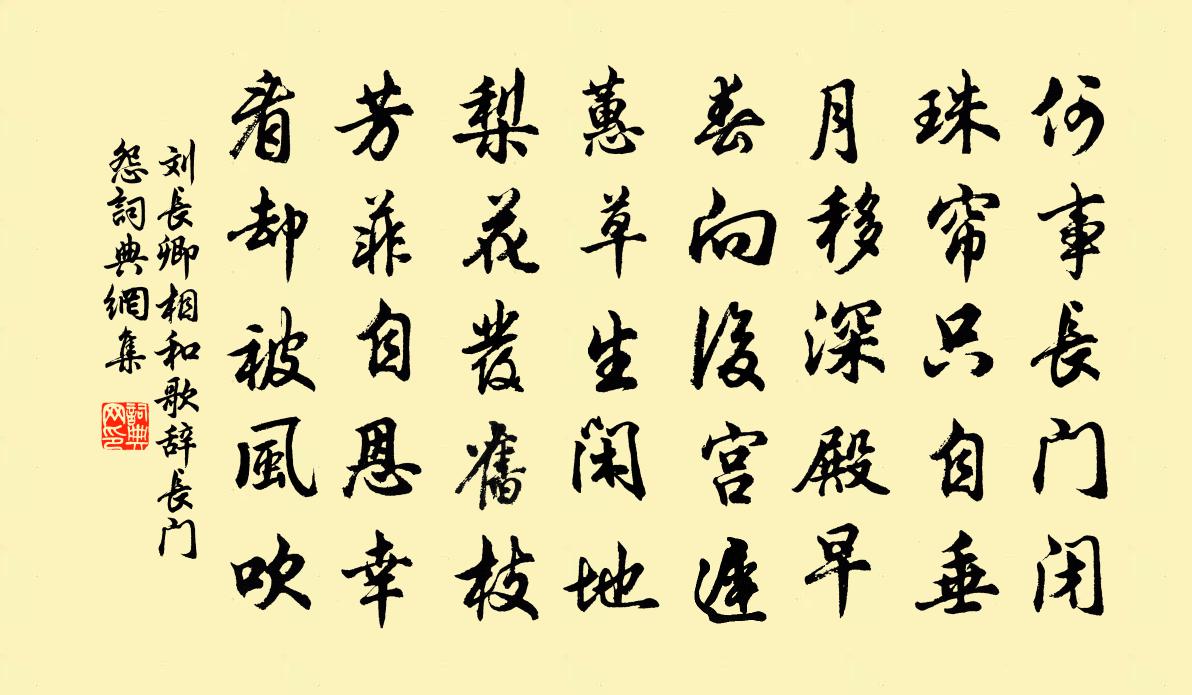 何事長门闭
珠帘只自垂
月移深殿早
春向後宫遲
蕙草生闲地
梨花發舊枝
芳菲自恩幸
看却被風吹
刘長卿相和歌辞長门
怨詞典網集
詞典网印